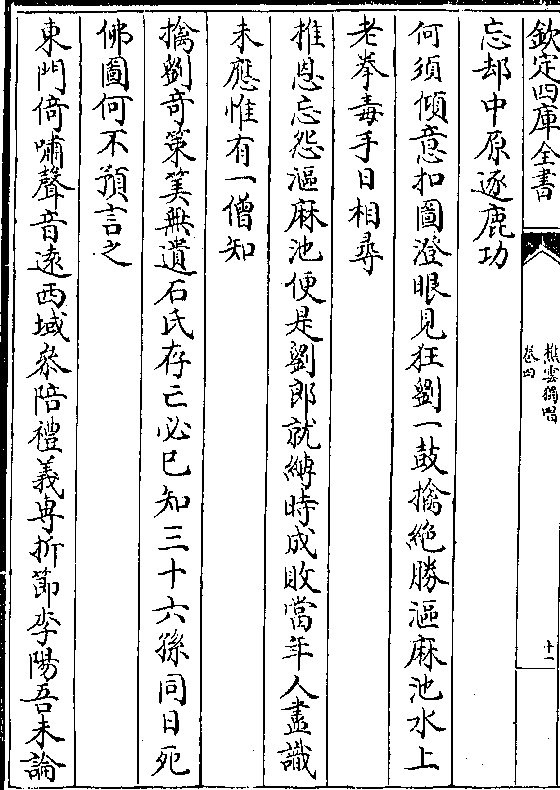 欽定四庫全書
樵雲獨唱
卷四
十一
忘却中原逐鹿功
何須傾意扣圖澄眼見狂劉一鼓擒絶勝漚麻池水上
老拳毒手日相尋
推恩忘怨漚麻池便是劉郎就縛時成敗當年人盡識
未應惟有一僧知
擒劉竒策筭無遺石氏存亡必已知三十六孫同日死
佛圖何不預言之
東門倚嘯聲音逺西域叅陪禮義専折節李陽吾未論